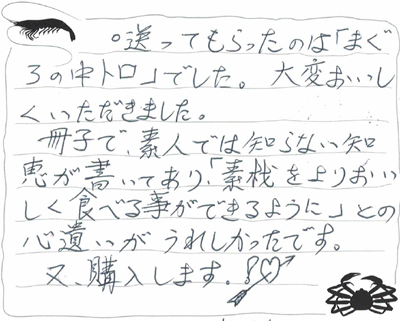 ○送ってもらったのは「まぐ
ろの中トロ」でした。大変おいし
くいただきました。
冊子で、素人では知らない知
恵が書いてあり、「素材をよりおい
しく食べる事ができるように」との
心遣いがうれしかったです。
又、購入します。!♡